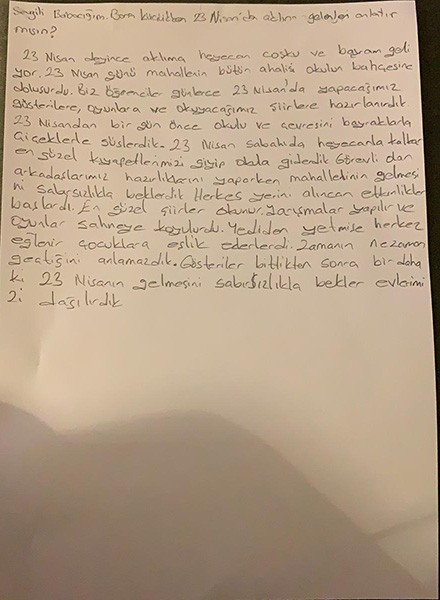 Sevgili Babacığım. Bana küçükken 23 Nisan'da aklına gelenleri anlatır
mısın?
23 Nisan deyince aklıma heyecan coşku ve bayram geli
yor. 23 Nisan günü mahallenin bütün ahalisi okulun bahçesine
dolusurdu. Biz öğrenciler günlerce 23 Nisan'da yapacağımız
gösterilere, oyunlara ve okuyacağımız şiirlere hazırlanırdık
23 Nisandan bir gün önce okulu ve çevresini bayraklarla
çiçeklerle süslerdik. 23 Nisan sabahıda heyecanla kalkar
en güzel kıyafetlerimizi giyip okula giderdik Görevli olan
arkadaşlarımız hazırlıklarını yaparken mahallelinin gelmesi
ni sabırsızlıkla beklerdik Herkes yerini alınca etkinlikler
başlardı. En güzel şiirler okunur. Yarışmalar yapılır ve
oyunlar sahneye koyulurdu. Yediden yetmişe herkez
eğlenir çocuklara eşlik ederlerdi. Zamanın nezaman
geçtiğini anlamazdık. Gösteriler bittikten sonra bir daha
ki 23 Nisanın gelmesini sabırsızlıkla bekler evlerimi
zi dağılırdık